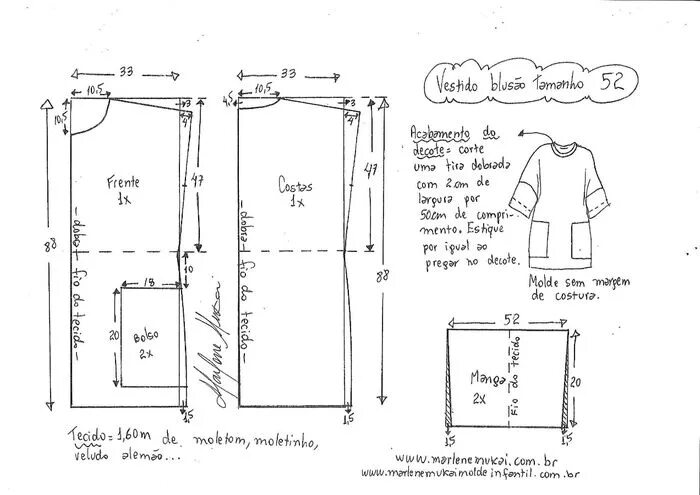 Vestido blusão Tamanho 52
33
10,5
10,5
3
4
47
88
Frente
1x
- dobra - fio do tecido -
10
18
20
Bolso
2x
1,5
33
10,5
4,5
3
4
47
88
Costas
1x
- dobra - fio do tecido -
1,5
Marlene Mukai
Acabamento do
decote = corte
uma tira dobrada
com 2 cm de
largura por
50cm de compri-
mento. Estique
por igual ao
pregar no decote.
Molde sem margem
de costura.
52
Manga
2x
Fio do tecido
20
1,5
1,5
Tecido = 1,60m de moletom, moletinho,
veludo alemão...
www.marlenemukai.com.br
www.marlenemukaimoldeinfantil.com.br